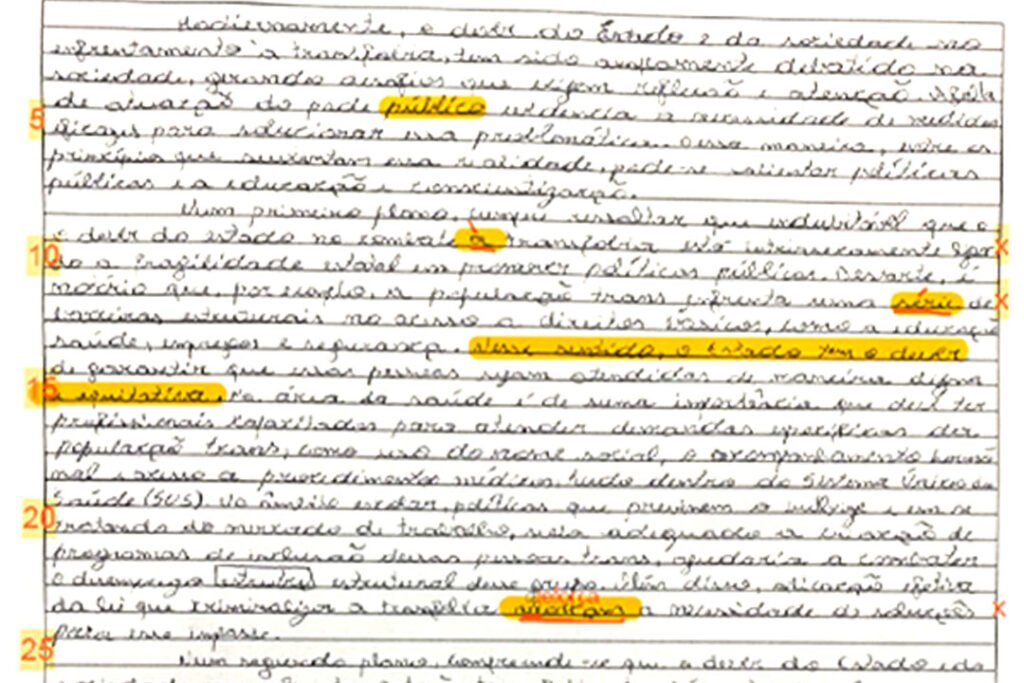 Hodiernamente, o dever do Estado e da sociedade no
enfrentamento à transfobia, tem sido amplamente debatido na
sociedade, gerando desafios que exigem reflexão e atenção. A falta
5 de atuação do pode público evidencia a necessidade de medidas
eficazes para solucionar essa problemática. Dessa maneira, entre os
princípios que sustentam essa realidade, pode-se salientar políticas
públicas e a educação e conscientização.
Num primeiro plano, cumpre ressaltar que indubitável que o
o dever do estado no combate a transfobia está intrinsecamente liga- x
10 do a fragilidade estatal em promover políticas públicas. Dessarte, é
notório que, por exemplo, a população trans enfrenta uma série de x
barreiras estruturais no acesso a direitos básicos, como a educação
saúde, empregos e segurança. Nesse sentido, o Estado tem o dever
de garantir que essas pessoas sejam atendidas de maneira digna
15 e equitativa. Na área da saúde é de suma importância que deve ter
profissionais capacitados para atender demandas específicas der
população trans, como uso do nome social, o acompanhamento hormo
nal e acesso a procedimentos médicos, tudo dentro do Sistema Único de
Saúde (SUS). No âmbito escolar, políticas que previnem o bullying e em se
20 tratando do mercado de trabalho, seria adequado a criação de
programas de inclusão dessas pessoas trans, ajudaria a combater
o desemprego estrutural desse grupo. Além disso, aplicação efetiva
da lei que criminaliza a transfobia mostram a necessidade de soluções x
para esse impasse.
25 Num segundo plano, compreende-se que o dever do Estado e da